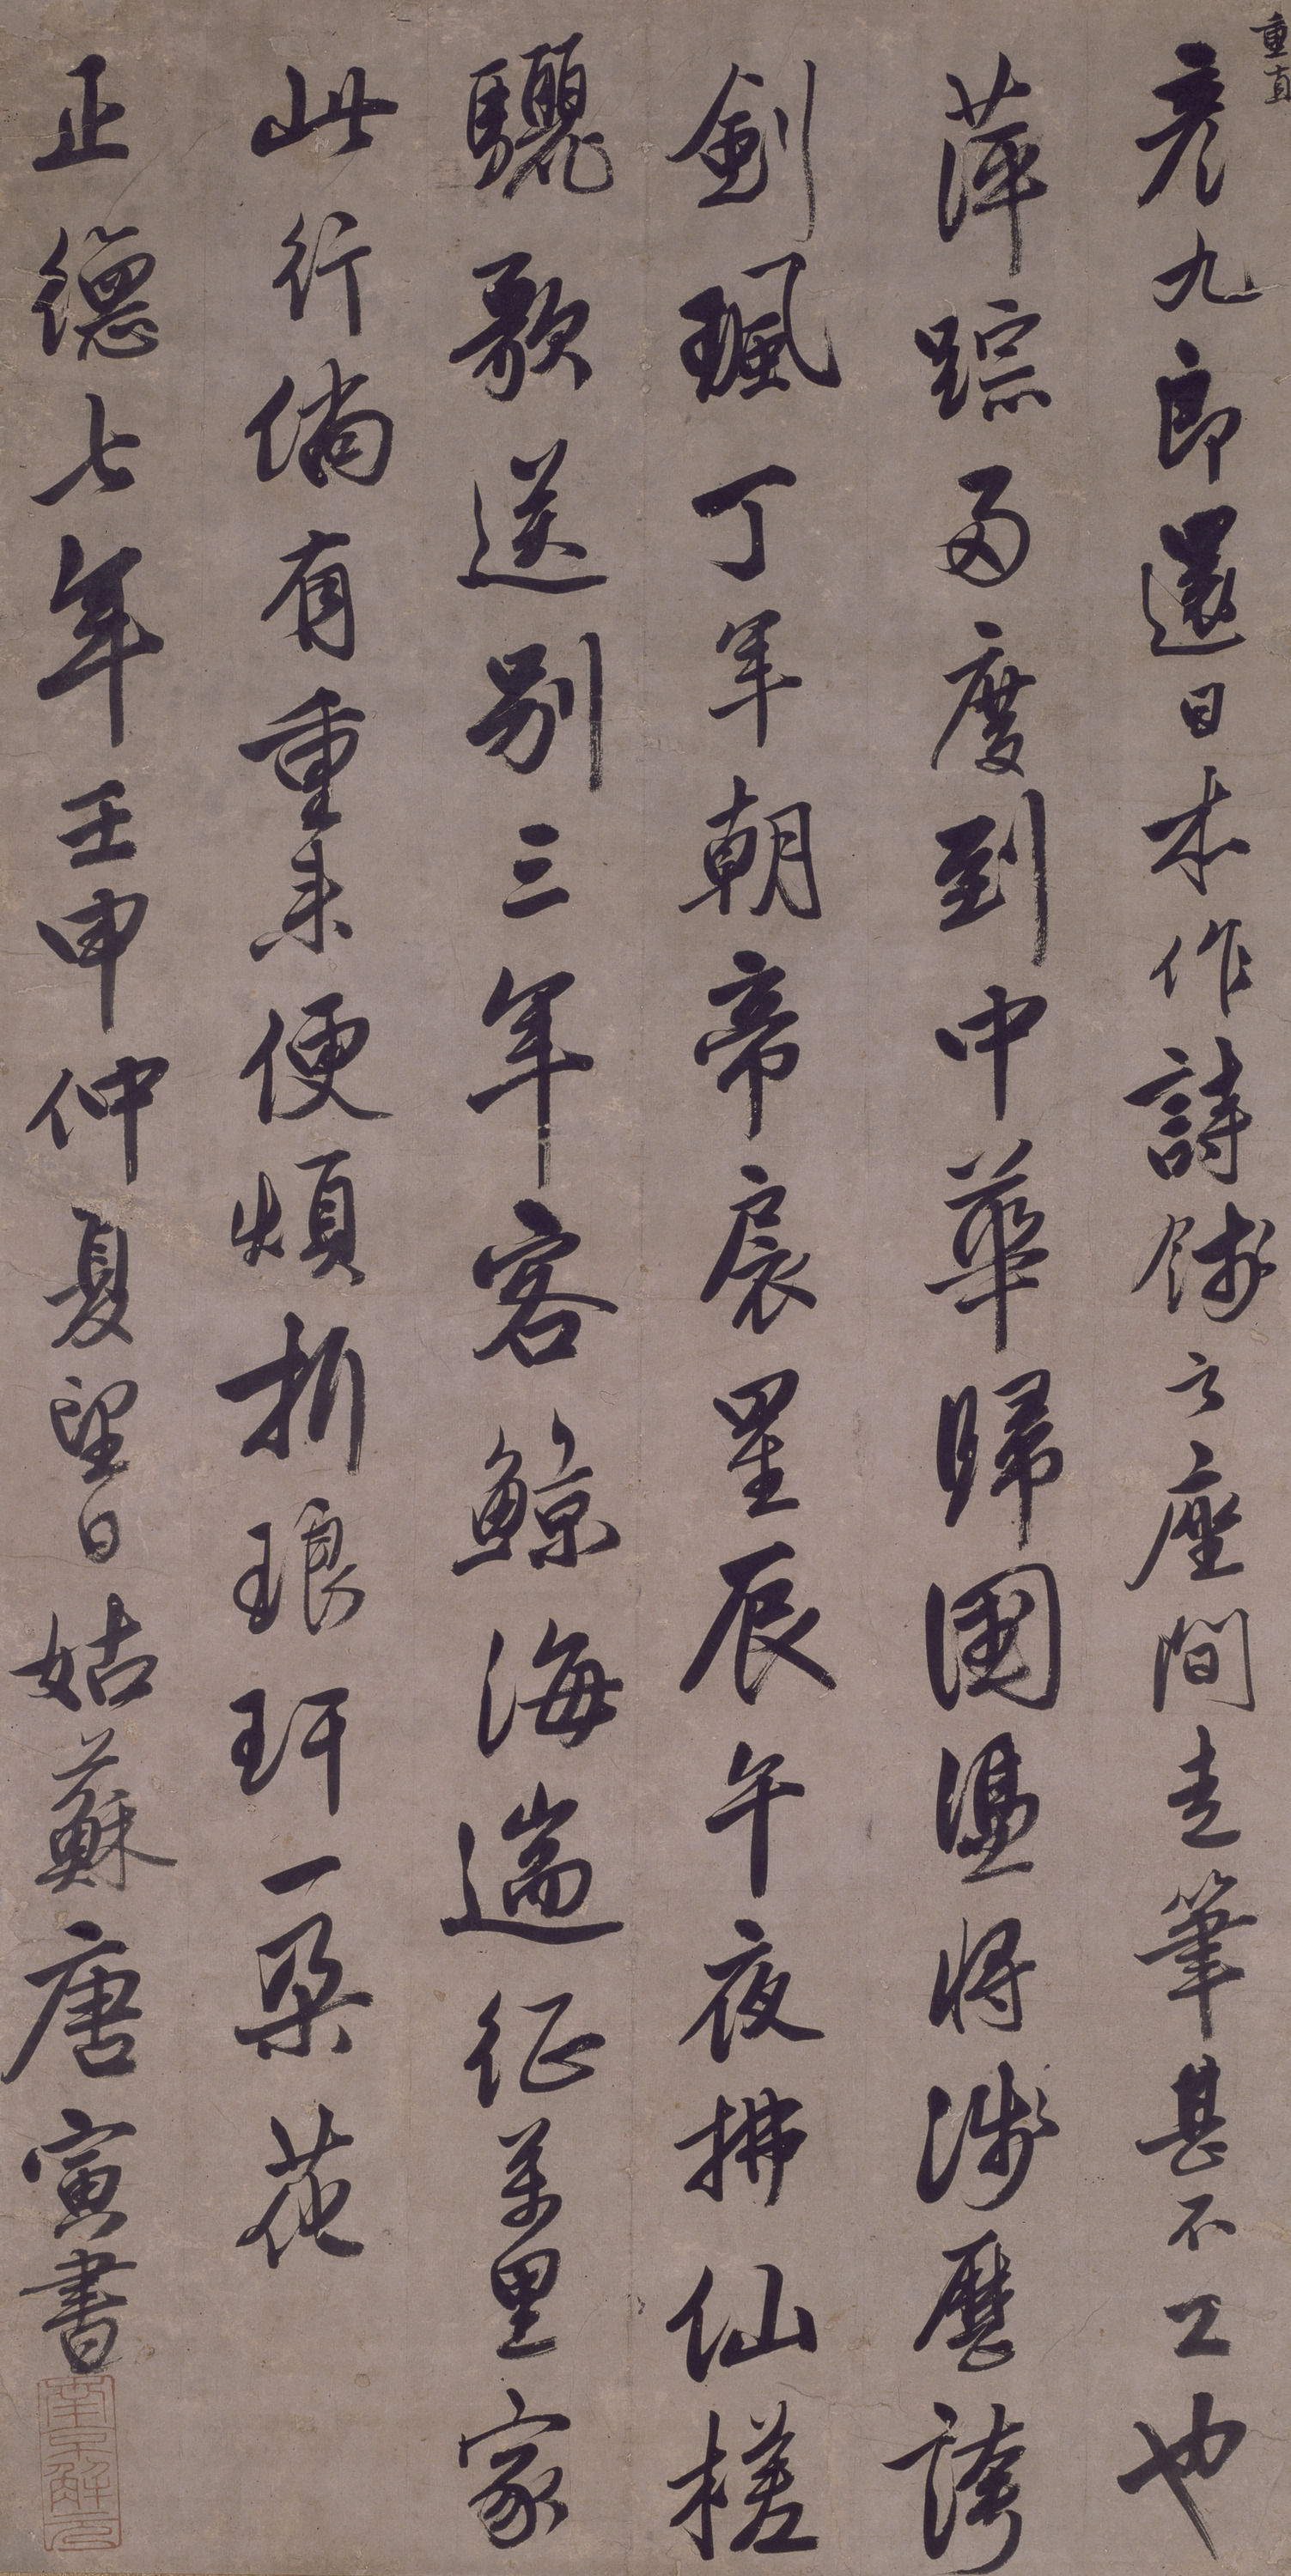 重直
彦九郎還日本作詩餞之座間走筆甚不工也
萍踪両度到中華歸國凴將涉歷誇
劍珮丁年朝帝扆星辰午夜拂仙槎
驪歌送別三年客鯨海遄征萬里家
此行倘有重来便煩折琅玕一朶花
正德七年壬申仲夏望日姑蘇唐寅書
南京解元